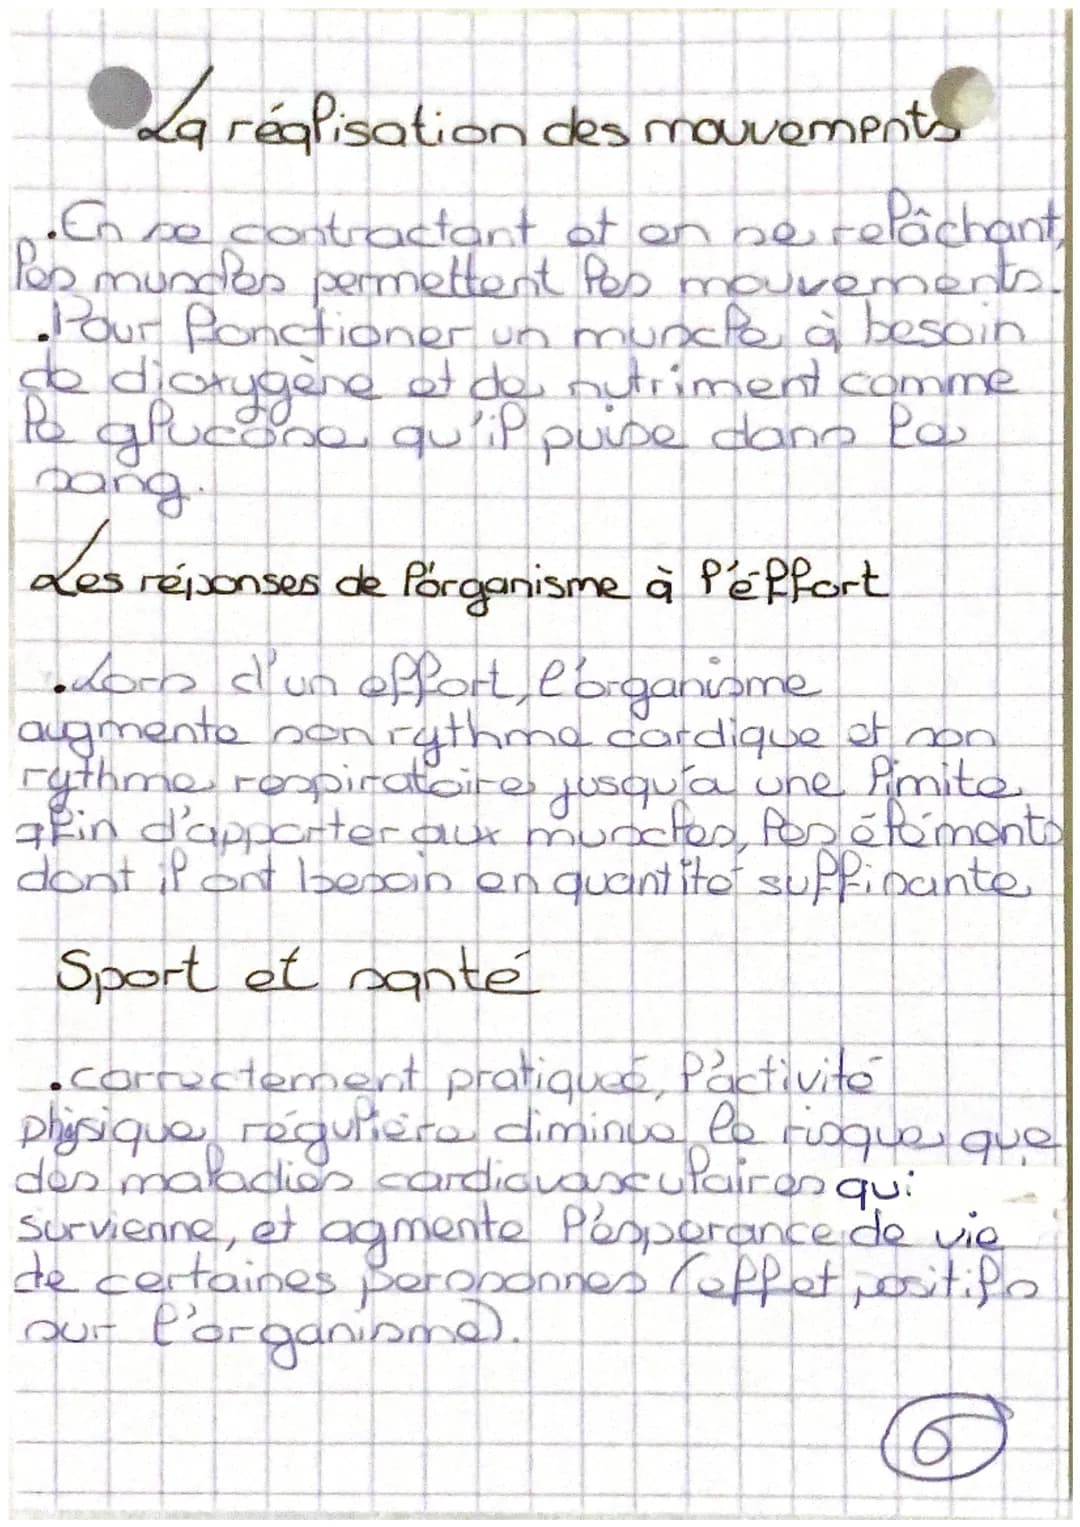 La réalisation des mouvements
.En se contractant et en se relâchant,
les muscles permettent les mouvements.
.Pour fonctioner un muscle à besoin
de dioxygène et de nutriment comme
le glucose qu'il puise dans le
sang.
Les réponses de l'organisme à l'éffort
.Lors d'un effort, l'organisme
augmente son rythme cardique et son
rythme respiratoire jusqu'a une limite
afin d'apporter aux muscles, les éléments
dont il ont besoin en quantité suffisante
Sport et santé
.correctement pratiqueé, l'activité
physique régulière diminue le risque que
des maladies cardiovasculaires qui
survienne, et agmente l'espperance de vie
de certaines perosonnes (effet positifs
sur l'organisme).
6